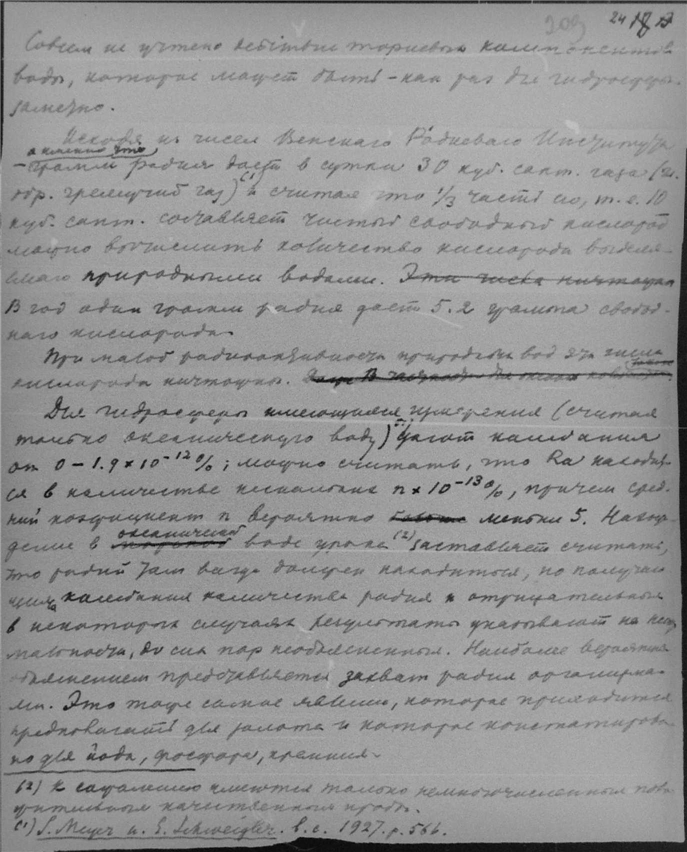 209 24
Совсем не учтено действие ториевых компонентов
воды, которое может быть - как раз для гидросферы
заметно.
Исходя из чисел Венскаго Радиеваго Института
а именно что
- грамм радия дает в сутки 30 куб. сант. газа (
обр. гремучий газ) (1) и считая что 1/3 часть его, т. е. 10
куб. сант. составляет чистый свободный кислород
можно вычислить количество кислорода выделя-
емаго природными водами. Эти числа ничтожны
В год один грамм радия дает 5.2 грамма свобод-
наго кислорода.
При малой радиоактивности природных вод эти числа
кислорода ничтожны.
Для гидросферы имеющиеся измерения (считая
только океаническую воду) дают колебания
от 0 - 1.9 × 10-12 %; можно считать, что Ra находит-
ся в количестве нескольких n × 10-13 %, причем сред-
ний коэффициент n вероятно меньше 5. Нахож-
океанической
дение в морской воде урана (2) заставляет считать,
что радий там всегда должен находиться, но получаю-
щияся колебания количества радия и отрицательныя
в некоторых случаях результаты указывают на
до сих пор необъясненныя. Наиболее вероятным
объяснением представляется захват радия организма-
ми. Это тоже самое явление, которое приходится
предполагать для золота и которое констатирова-
но для йода, фосфора, кремния.
(2) К сожалению имеются только немногочисленныя
качественныя пробы.
(1) S. Meyer u. E. Schweidler. l. c. 1927. p. 566.